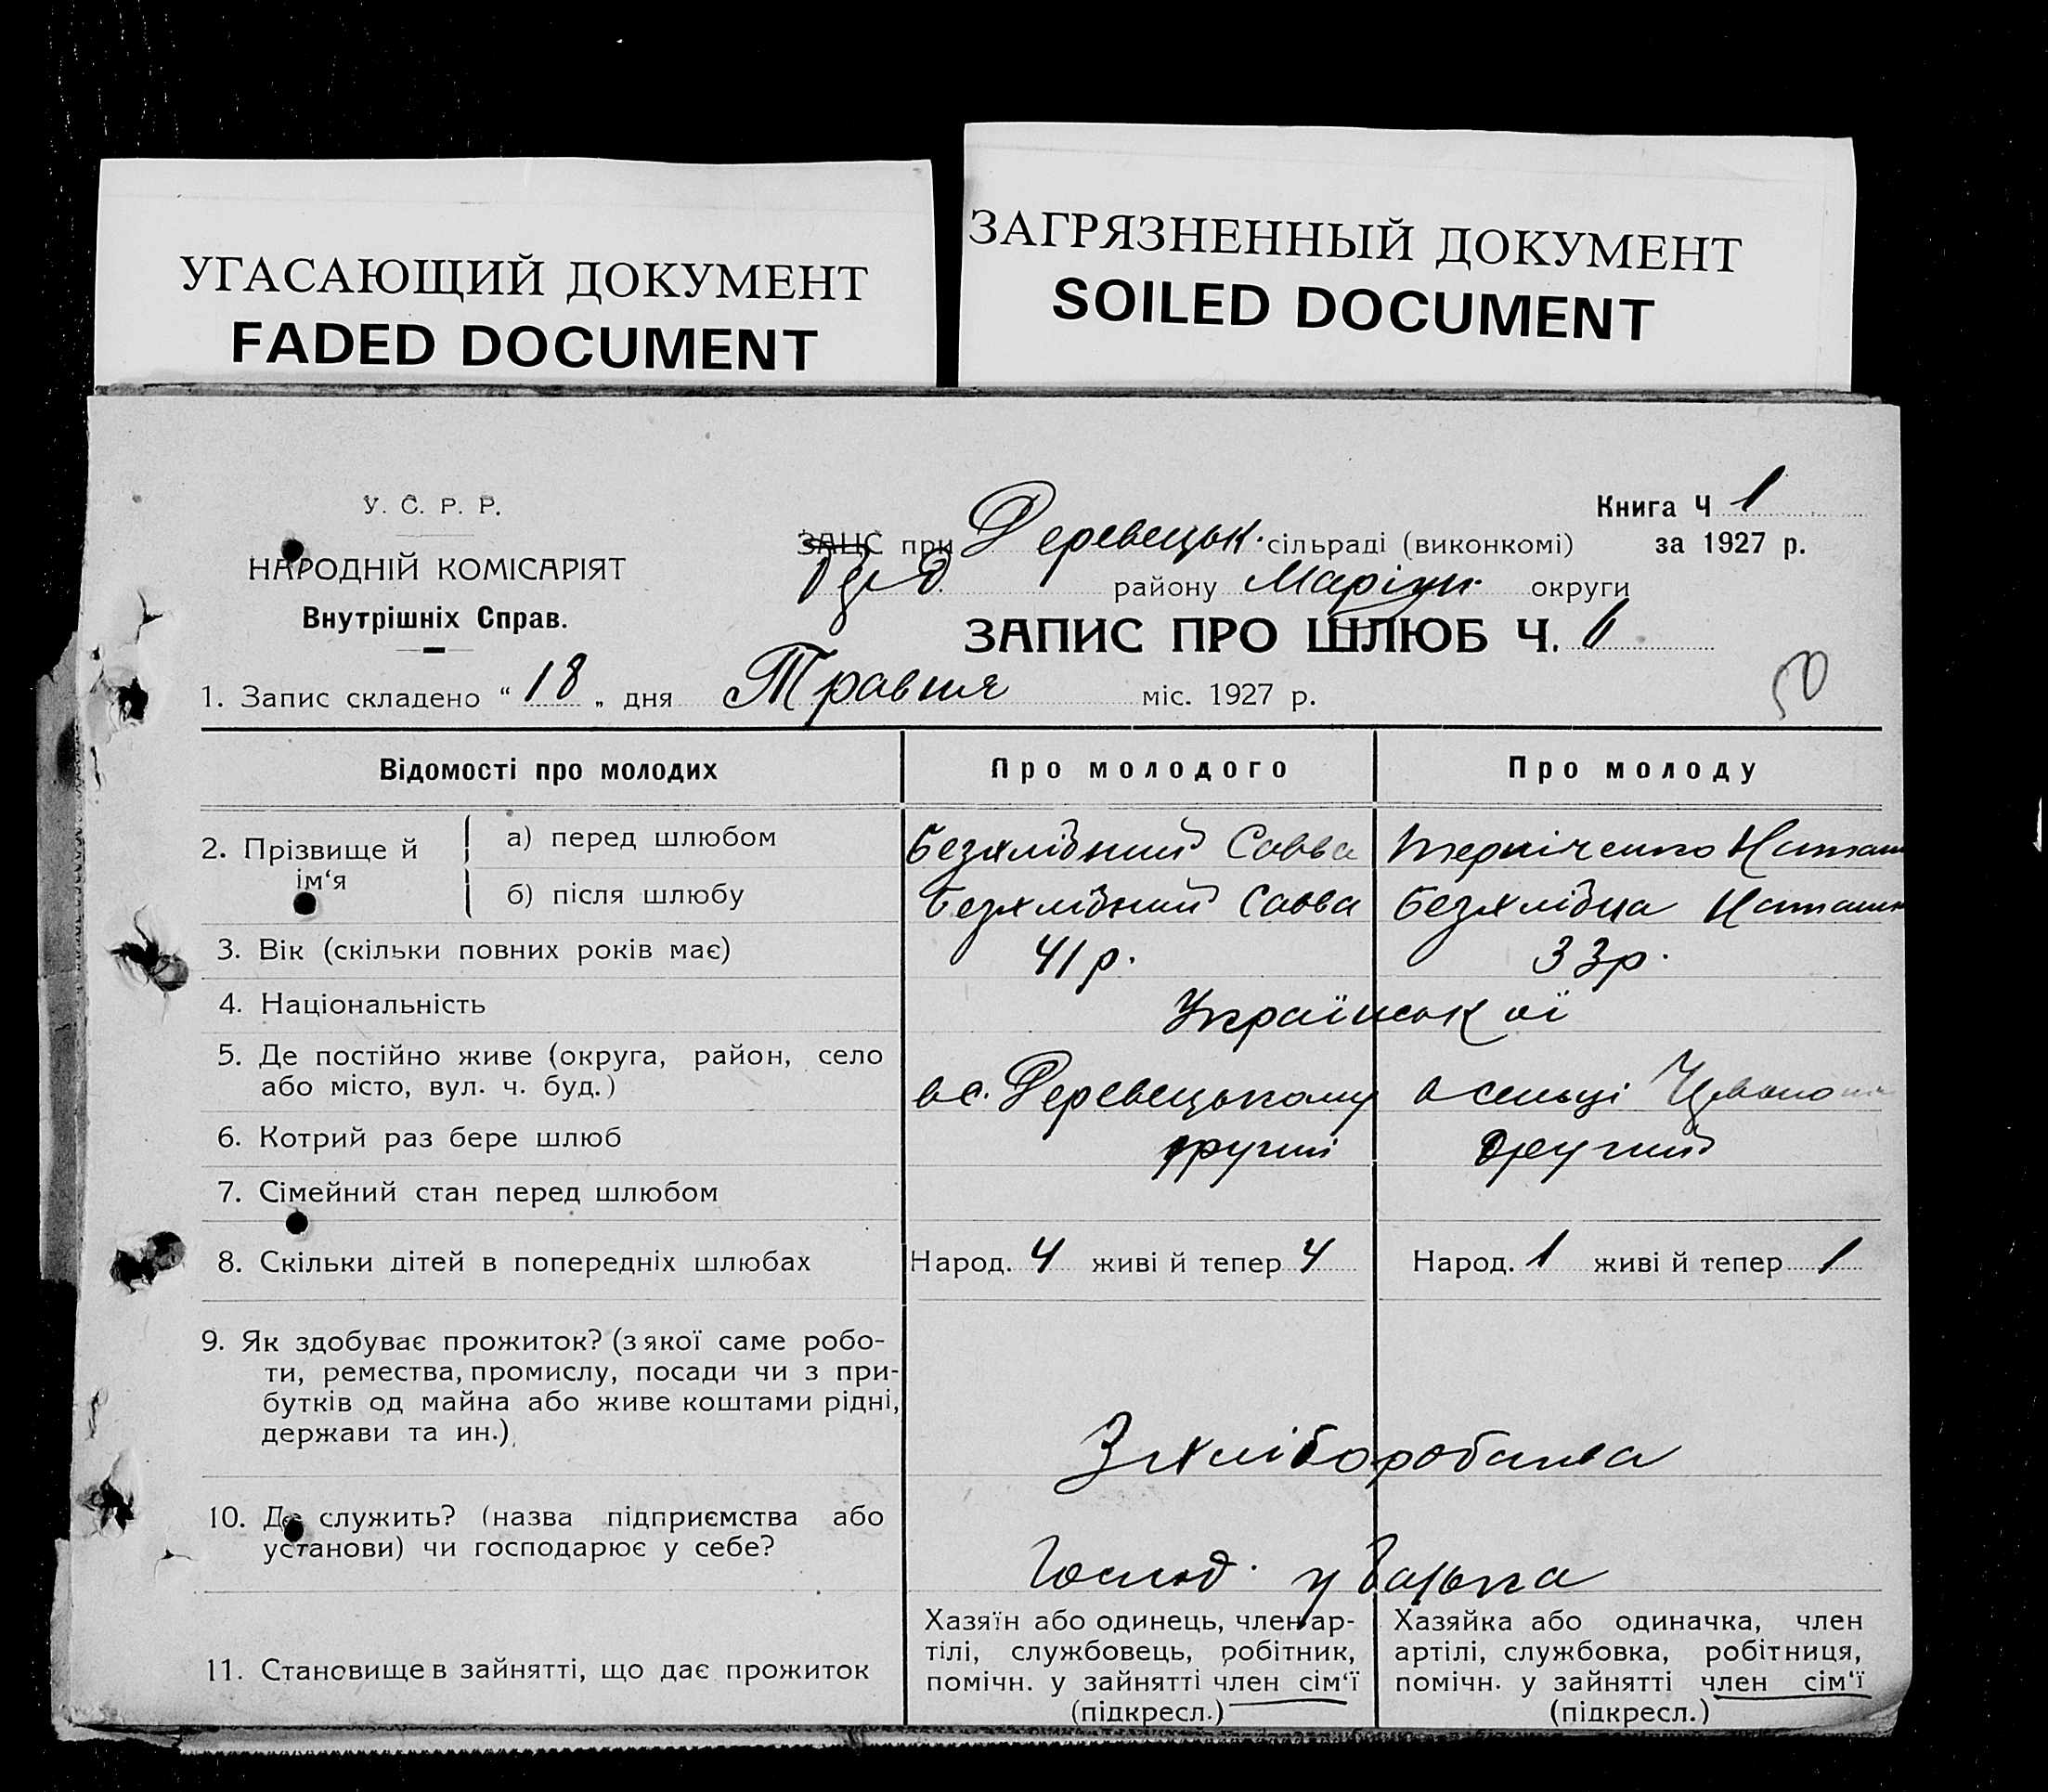 УГАСАЮЩИЙ ДОКУМЕНТ
FADED DOCUMENT
ЗАГРЯЗНЕННЫЙ ДОКУМЕНТ
SOILED DOCUMENT
У. С. Р. Р.
НАРОДНІЙ КОМІСАРІЯТ
Внутрішніх Справ.
Книга Ч 1
за 1927 р.
ЗАЦС при Деревецьк. сільраді (виконкомі)
району Маріуп. округи
ЗАПИС ПРО ШЛЮБ Ч. 6
50
1. Запис складено " 18 " дня Травня міс. 1927 р.
Відомості про молодих Про молодого Про молоду
2. Прізвище й ім'я
а) перед шлюбом Безхлібний Савва
б) після шлюбу Безхлібний Савва Безхлібна
3. Вік (скільки повних років має) 41 р. 33 р.
4. Національність Української
5. Де постійно живе (округа, район, село
або місто, вул. ч. буд.) в с. Деревецькому в сельці
6. Котрий раз бере шлюб другий другий
7. Сімейний стан перед шлюбом
8. Скільки дітей в попередніх шлюбах Народ. 4 живі й тепер 4 Народ. 1 живі й тепер 1
9. Як здобуває прожиток? (з якої саме робо-
ти, ремества, промислу, посади чи з при-
бутків од майна або живе коштами рідні,
держави та ин.)
З хліборобства
10. Де служить? (назва підприємства або
установи) чи господарює у себе?
Господ. у батька
11. Становище в зайнятті, що дає прожиток
Хазяїн або одинець, член ар-
тілі, службовець, робітник,
помічн. у зайнятті член сім'ї
(підкресл.)
Хазяйка або одиначка, член
артілі, службовка, робітниця,
помічн. у зайнятті член сім'ї
(підкресл.)